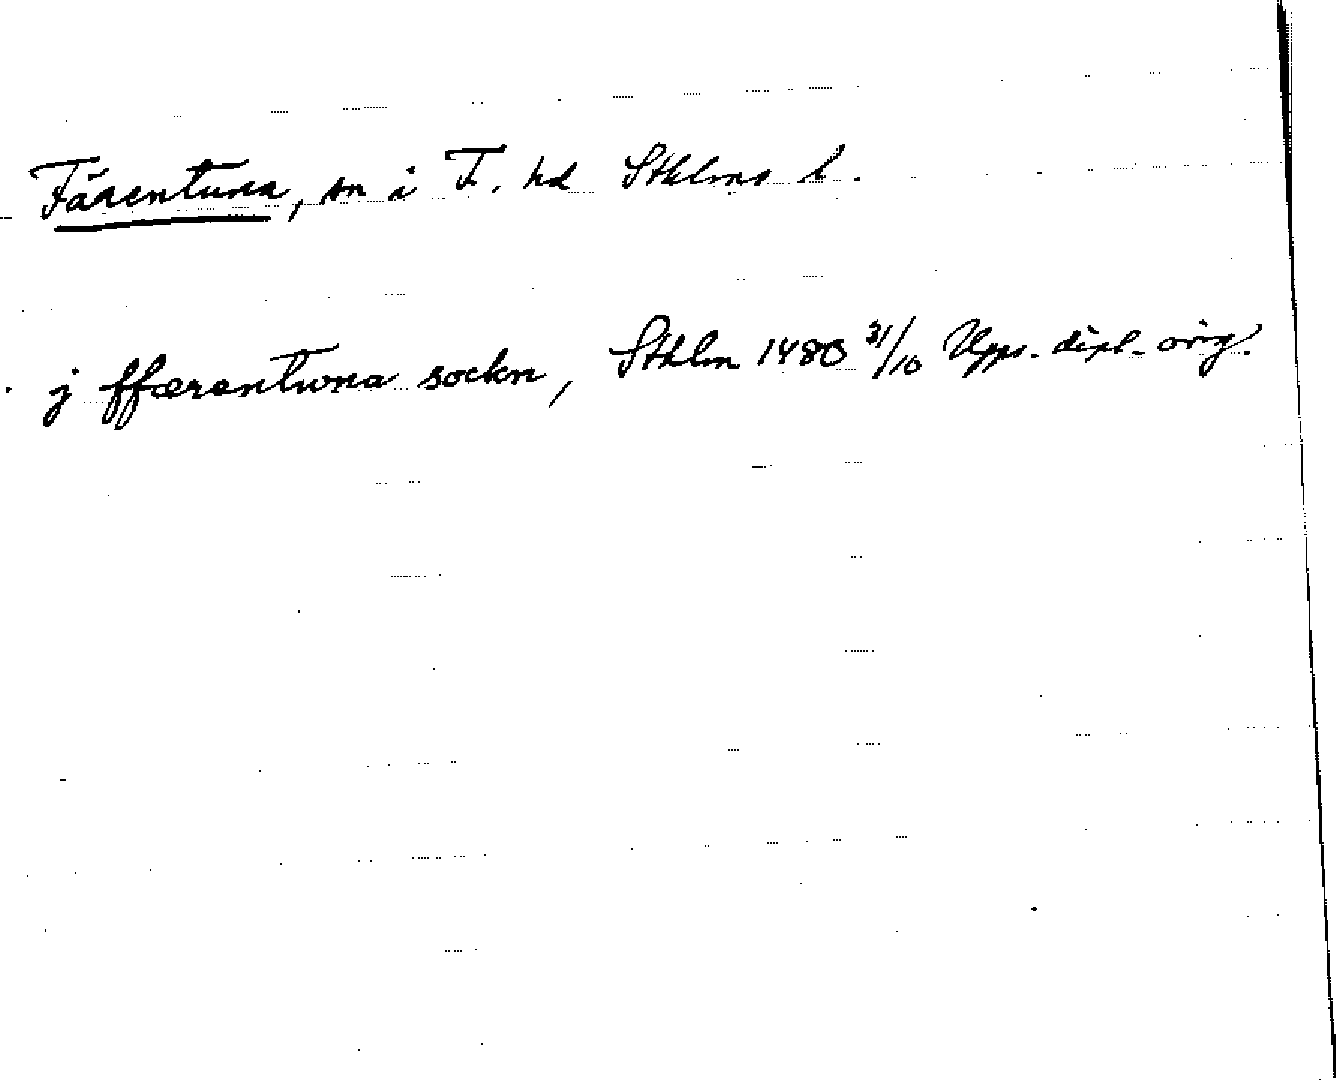 Färentuna, sn i F. hd Sthlms l.
j ffærentwna sockn, Sthlm 1480 31/10 Upps. dipl. orig.